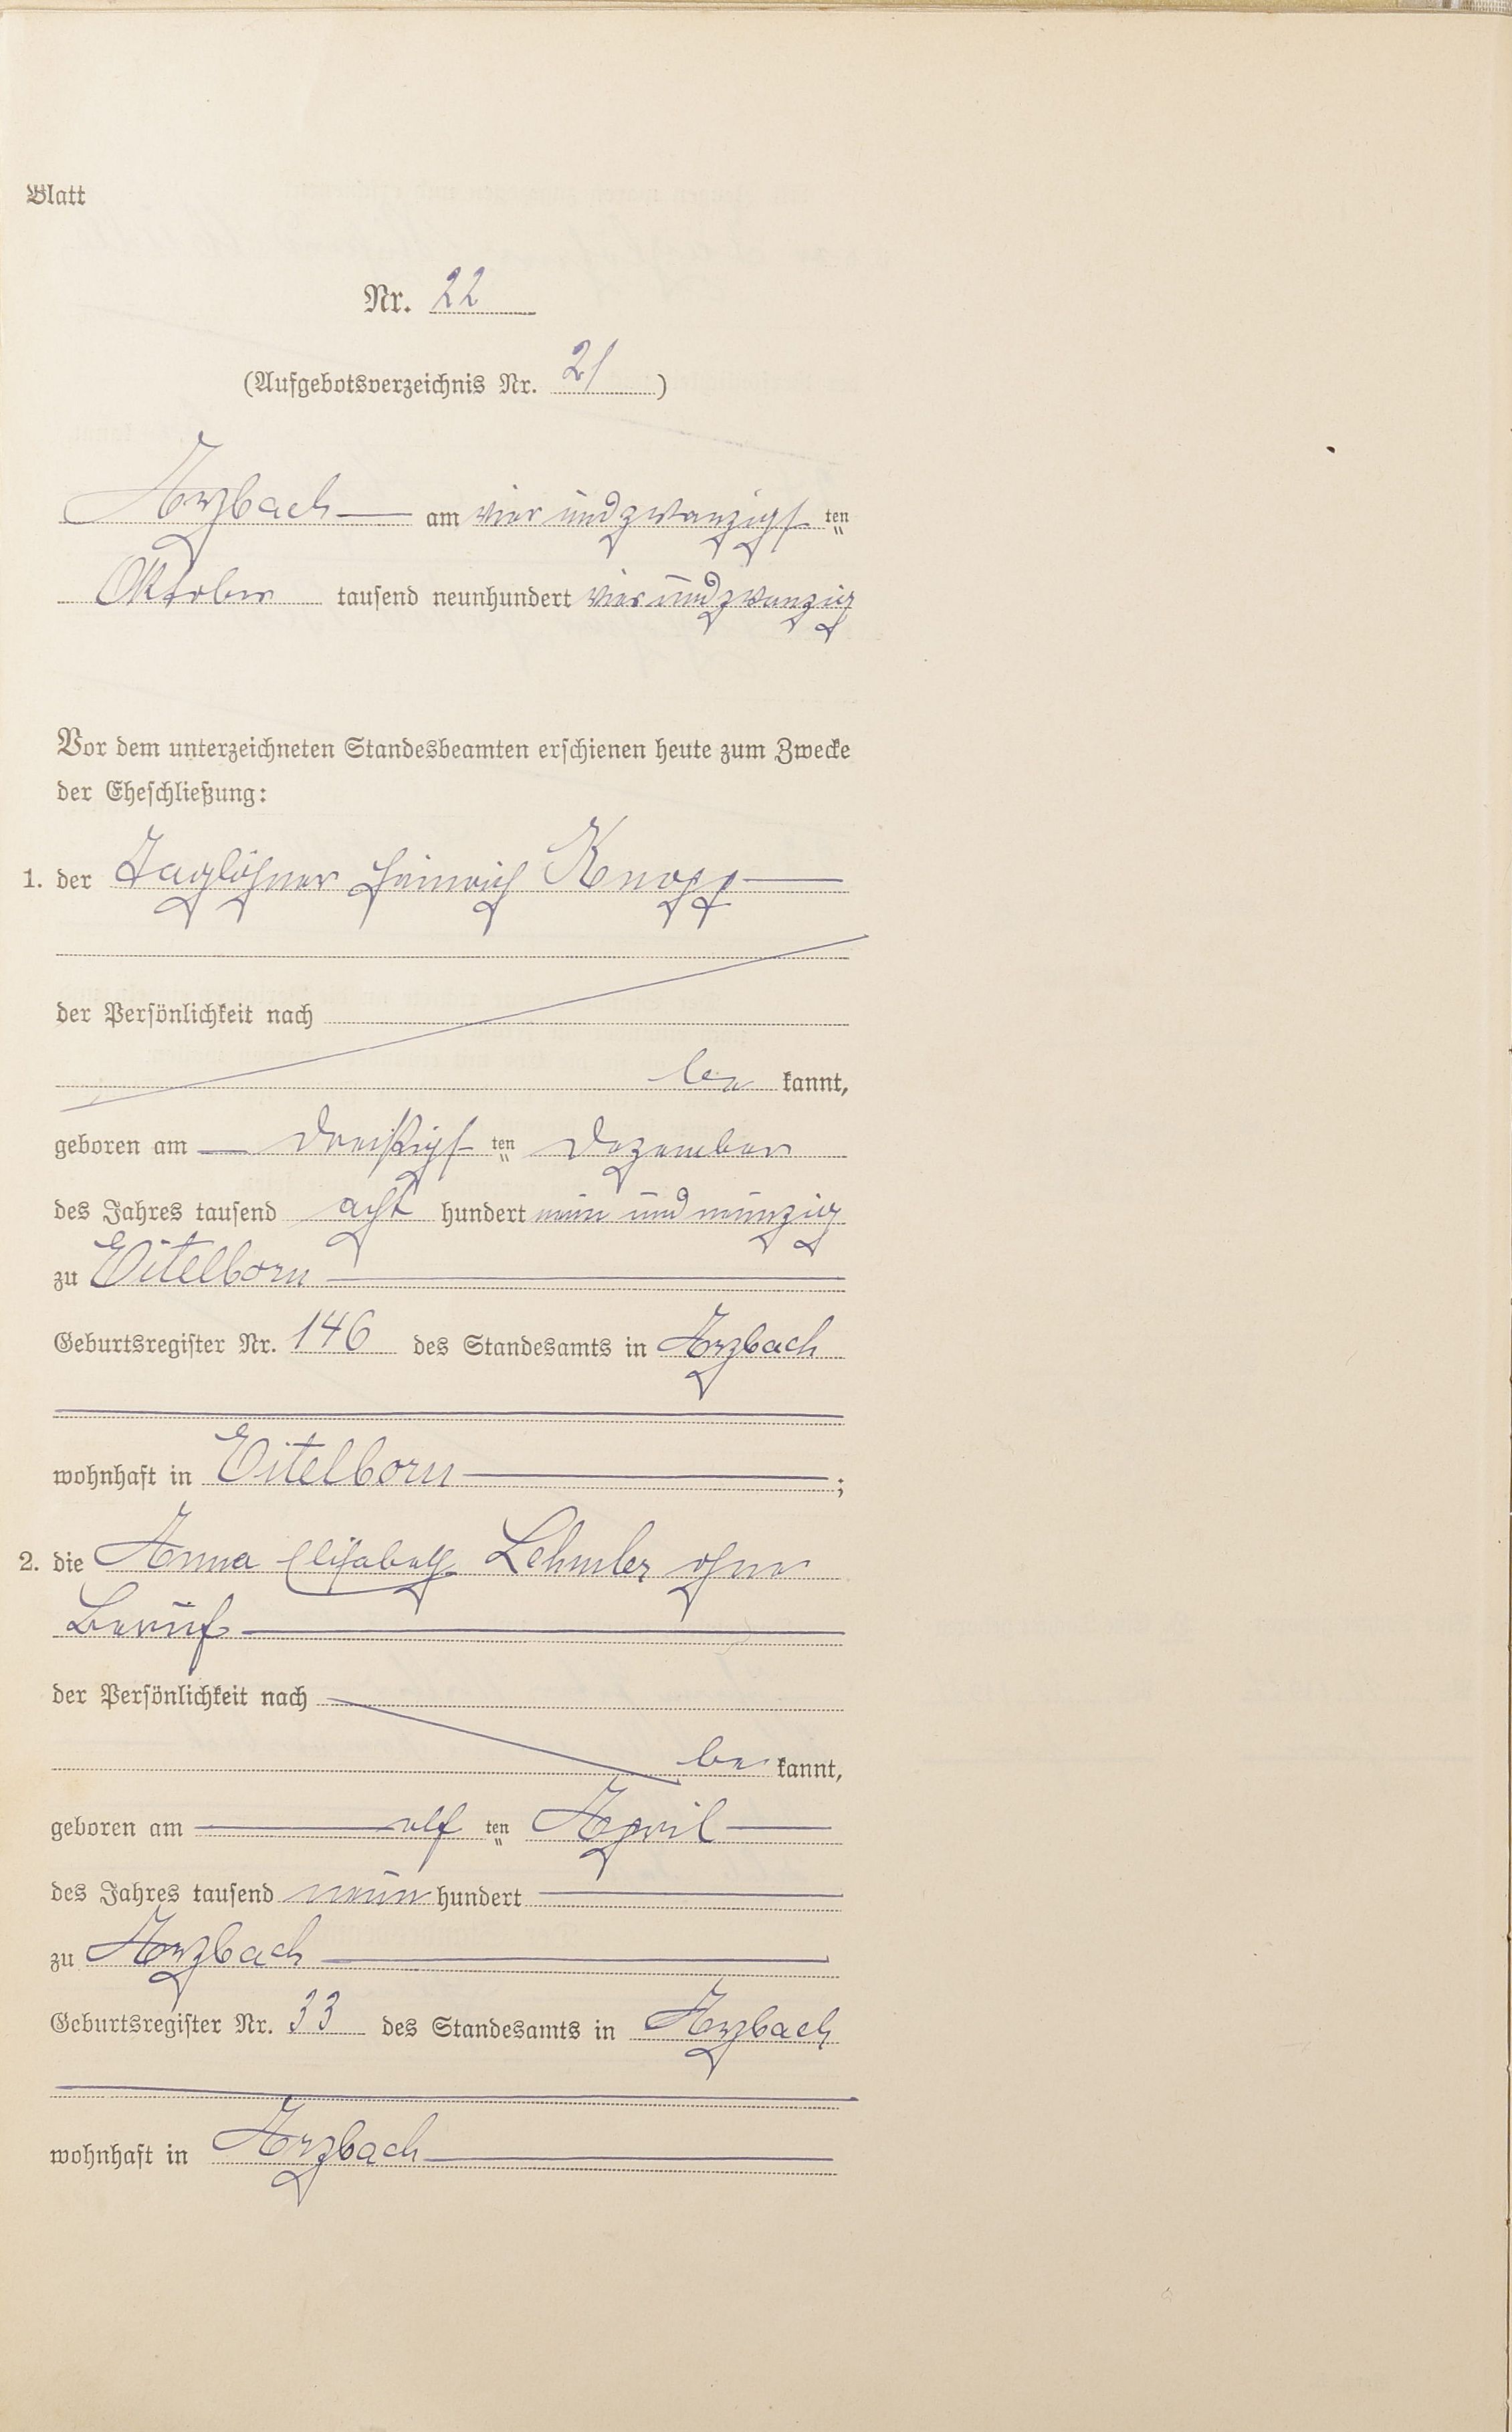 Blatt
Nr. 22
(Aufgebotsverzeichnis Nr. 21)
Arzbach am vierundzwanzigsten
Oktober tausend neunhundert vierundzwanzig
Vor dem unterzeichneten Standesbeamten erschienen heute zum Zwecke
der Eheschließung:
1. der Taglöhner Heinrich Knopp
der Persönlichkeit nach
be kannt,
geboren am dreißigsten Dezember
des Jahres tausend acht hundert neun und neunzig
zu Eitelborn
Geburtsregister Nr. 146 des Standesamts in Arzbach
wohnhaft in Eitelborn ;
2. die Anna Elisabeth Lehmler ohne
Beruf
der Persönlichkeit nach
be kannt,
geboren am elf ten April
des Jahres tausend neun hundert
zu Arzbach
Geburtsregister Nr. 33 des Standesamts in Arzbach
wohnhaft in Arzbach